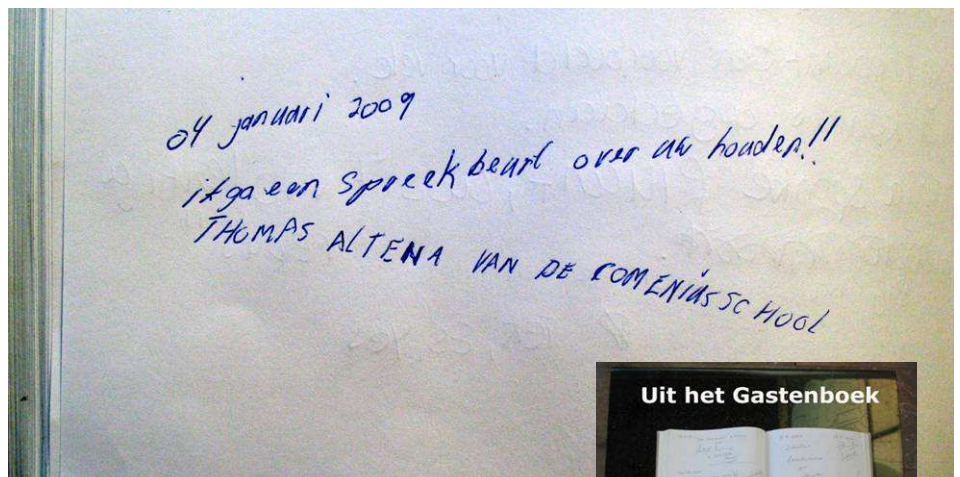 04 januari 2009
ik ga een spreekbeurt over uw houden!!
THOMAS ALTENA VAN DE COMENIUSSCHOOL
Uit het Gastenboek